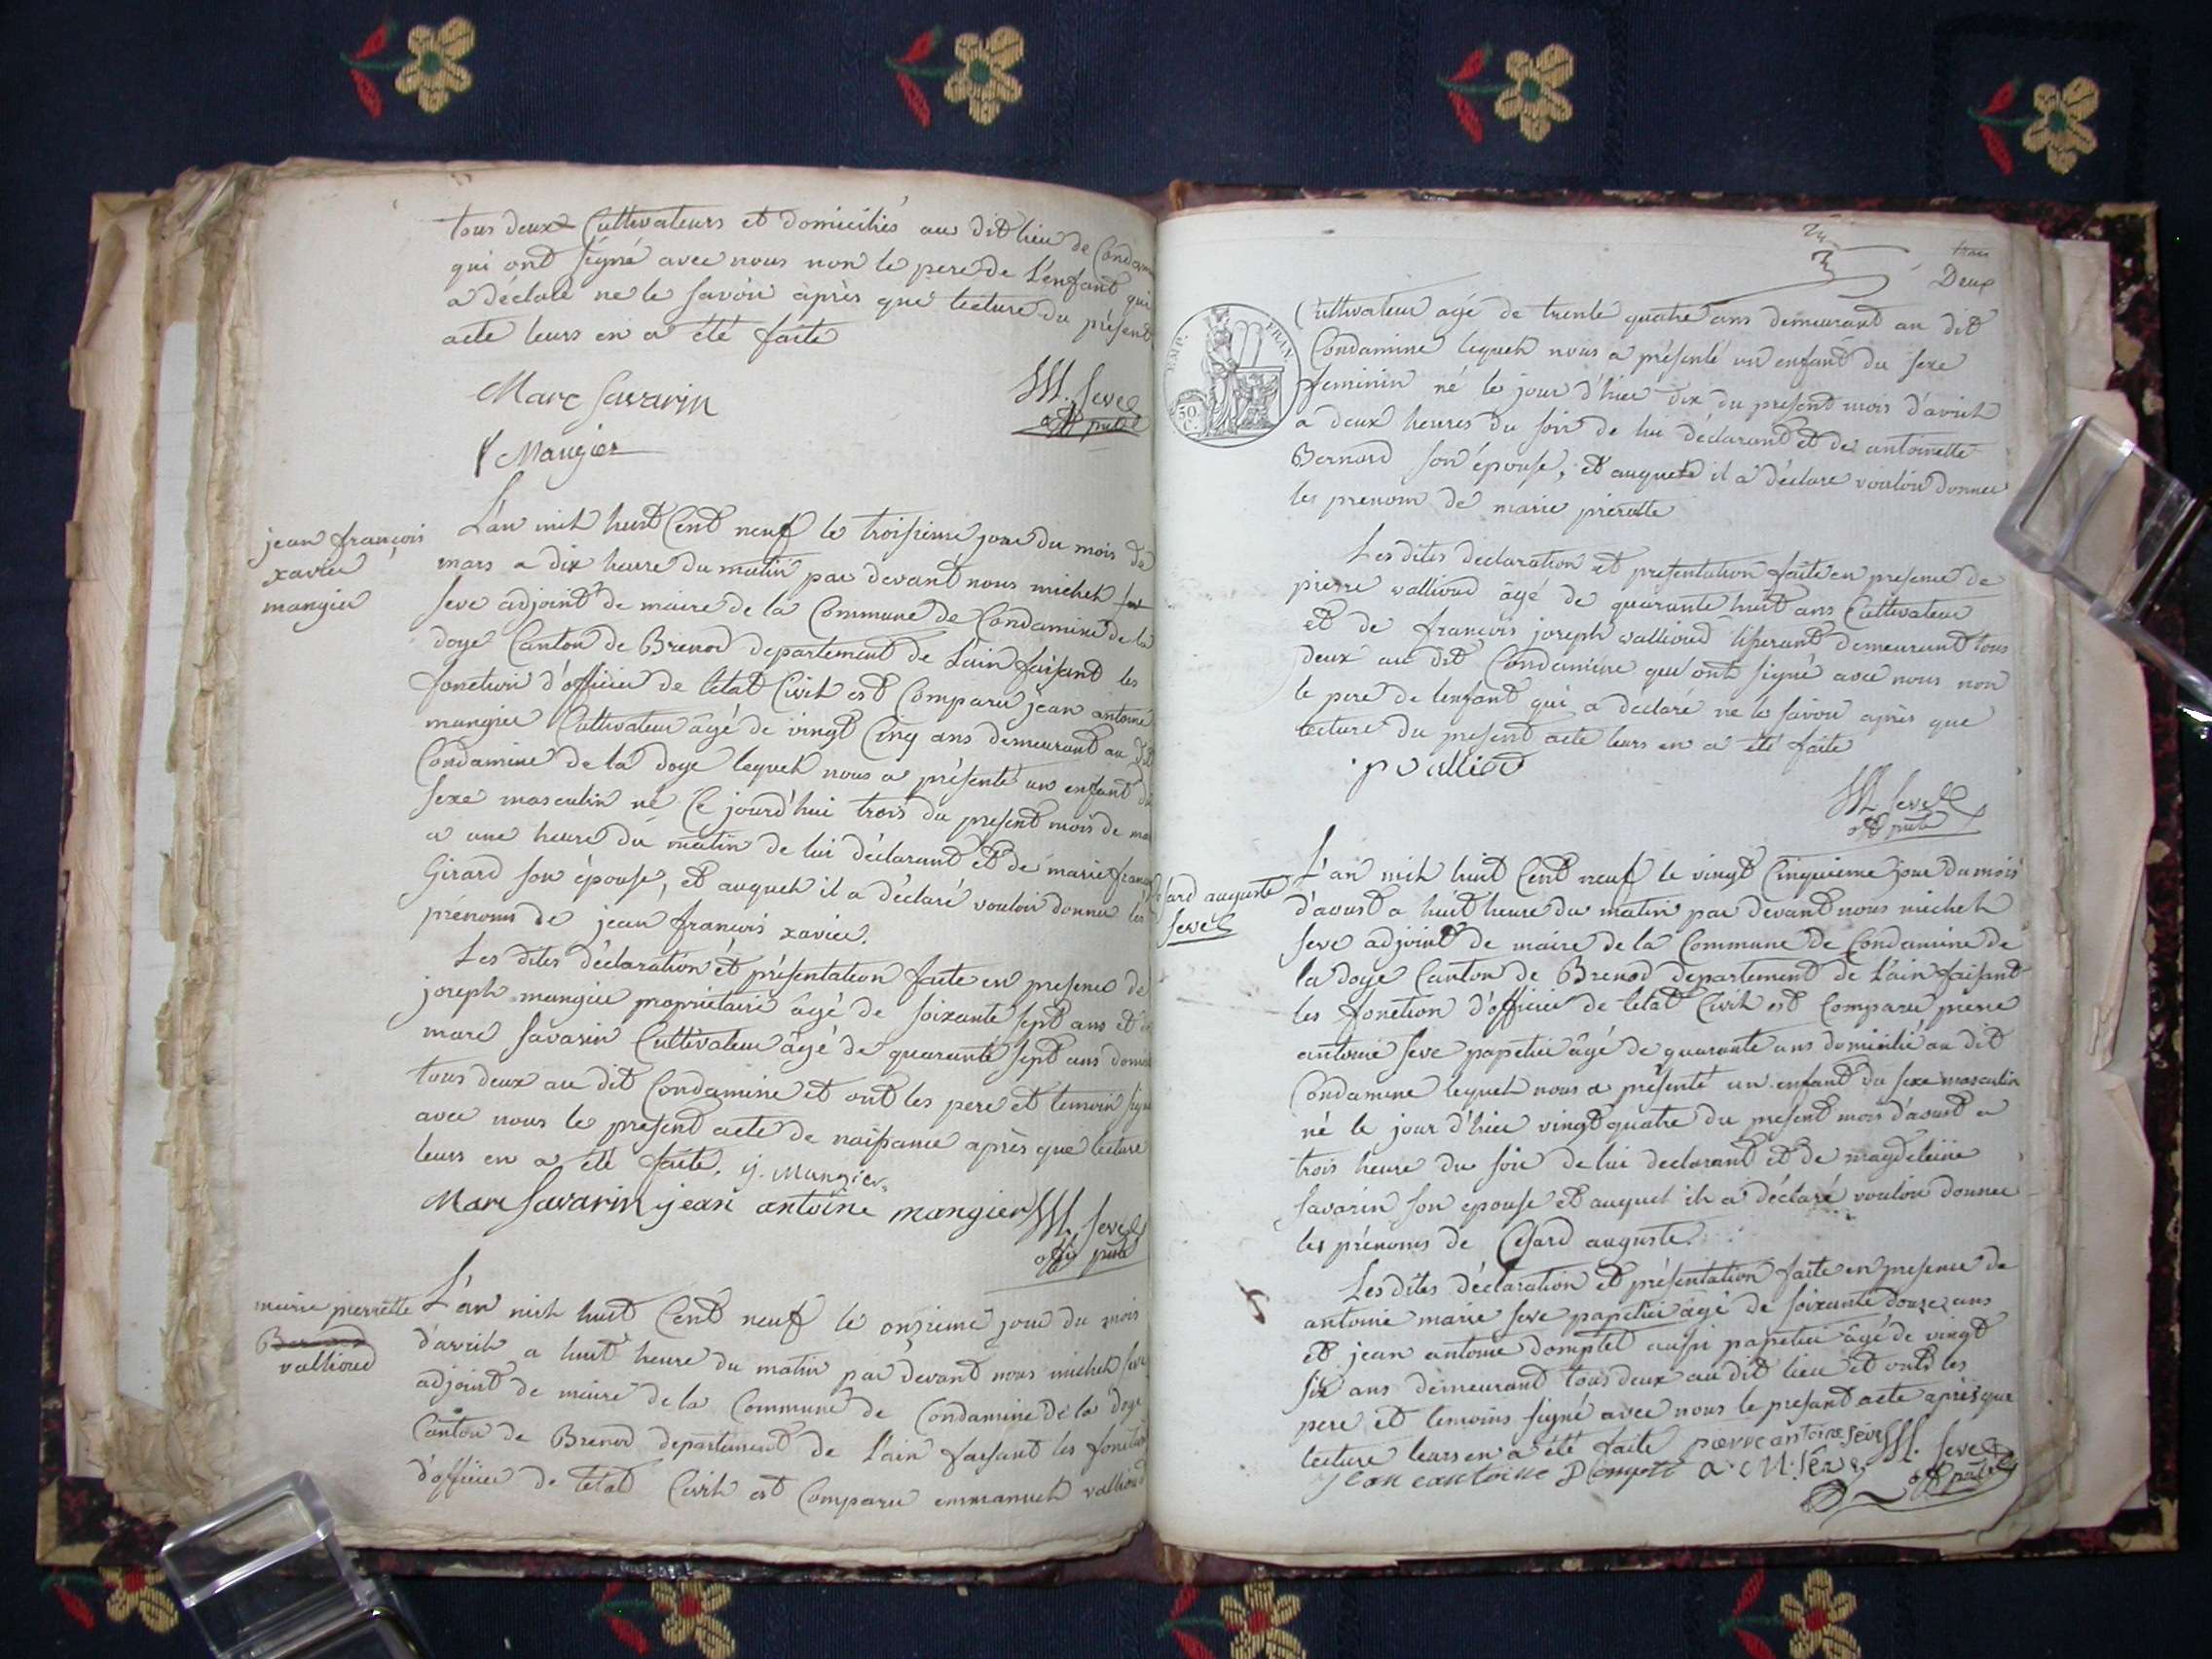 tous deux Cultivateurs et domiciliés au dit lieu de
qui ont signé avec nous non le pere de L'enfant qui
a déclaré ne le savoir après que lecture du présent
acte leurs en a été faite
Marc Savarin
M. Seve
Mangier
jean françois
xavier
mangier
L'an mil huit Cent neuf le troisieme jour du mois de
mars a dix heure du matin par devant nous michel
seve adjoint de maire de la Commune de Condamine de la
doye Canton de Brenod departement de L'ain faisant les
fonction d'officier de l'état Civil est Comparu jean antoine
mangier Cultivateur âgé de vingt Cinq ans demeurant au dit
Condamine de la doye lequel nous a présenté un enfant du
sexe masculin né Ce jourd'hui trois du present mois de
a une heure du matin de lui déclarant et de marie
Girard son épouse, et auquel il a déclaré vouloir donner les
prénoms de jean francois xavier.
Les dites déclaration et présentation faite en presence de
joseph mangier proprietaire âgé de soixante sept ans et
marc Savarin Cultivateur âgé de quarante sept ans
tous deux au dit Condamine et ont les pere et temoin
avec nous le present acte de naissance après que lecture
leurs en a été faite. j. Mangier
Marc Savarin jean antoine mangier M. Seve
marie pierrette
vallioud
L'an mil huit Cent neuf le onzieme jour du mois
d'avril a huit heure du matin par devant nous michel seve
adjoint de maire de la Commune de Condamine de la doye
Canton de Brenod departement de L'ain faisant les fonction
d'officier de l'etat Civil est Comparu emmanuel vallioud
Deux
EMP. FRAN.
50 C.
Cultivateur agé de trente quatre ans demeurant au dit
Condamine lequel nous a présenté un enfant du sexe
feminin né le jour d'hier dix du present mois d'avril
a deux heures du soir de lui declarant et de antoinette
Bernard son épouse, et auquel il a déclaré vouloir donner
les prenom de marie pierette
Les dites declaration et presentation faite en presence de
pierre vallioud âgé de quarante huit ans Cultivateur
et de francois joseph vallioud demeurant tous
deux au dit Condamine qui ont signé avec nous non
le pere de lenfant qui a declaré ne le savoir après que
lecture du present acte leurs en a été faite
M. Seve
auguste
seve
L'an mil huit Cent neuf le vingt Cinquieme jour du mois
d'aoust a huit heure du matin par devant nous michel
seve adjoint de maire de la Commune de Condamine de
la doye Canton de Brenod departement de L'ain faisant
les fonction d'officier de l'etat Civil est Comparu pierre
antoine seve papetier âgé de quarante ans domicilié au dit
Condamine lequel nous a présenté un enfant du sexe masculin
né le jour d'hier vingt quatre du present mois d'aoust a
trois heure du soir de lui declarant et de magdeleine
Savarin son epouse et auquel il a déclaré vouloir donner
les prénoms de Césard auguste.
Les dites déclaration et présentation faite en presence de
antoine marie seve papetier âgé de soixante douze ans
et jean antoine domptet aussi papetier âgé de vingt
six ans demeurant tous deux au dit lieu et ont les
pere et temoins signé avec nous le présent acte après que
lecture leurs en a été faite pierre antoine seve M. Seve
jean antoine a. M. seve